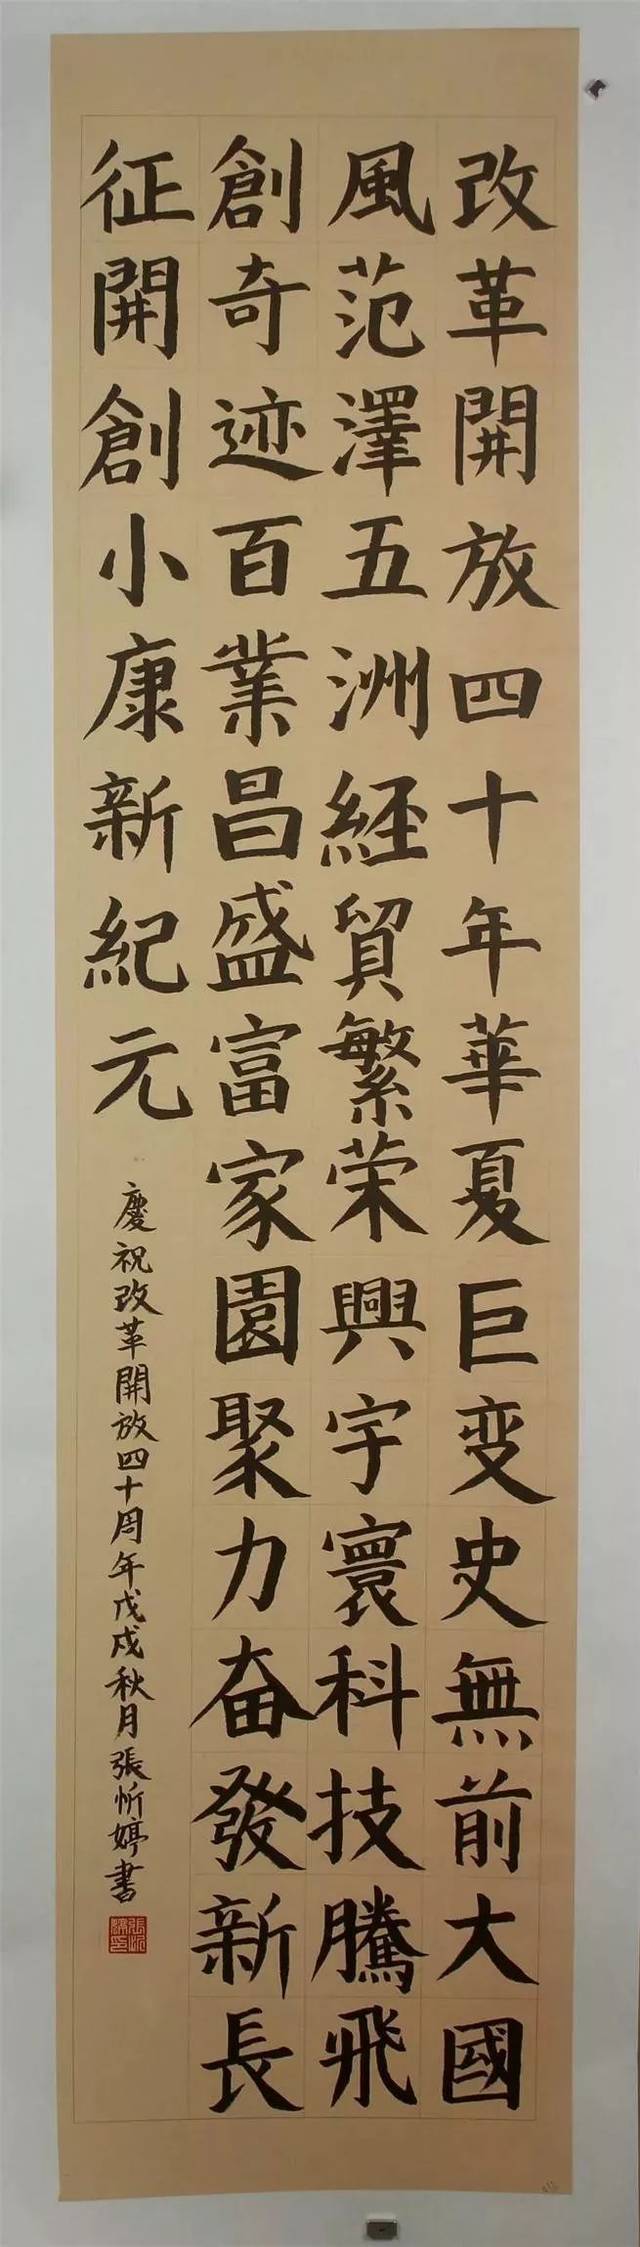 改革開放四十年華夏巨变史無前大國
風范澤五洲経貿繁荣興宇寰科技騰飛
創奇迹百業昌盛富家園聚力奋發新長
征開創小康新紀元
慶祝改革開放四十周年戊戌秋月張忻婷書